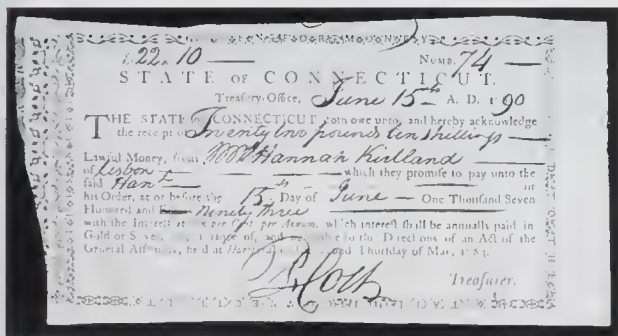 22 „ 10 — NUMB. 74 —
STATE OF CONNECTICUT.
Treasury-Office, June 15th A. D. 1 90
THE STATE CONNECTICUT doth owe unto, and hereby acknowledge
the receipt of Twenty two pounds ten shillings —
Lawful Money, from Hannah Kirtland —
of Lisbon — which they promise to pay unto the
said Hanh — or
his Order, at or before the 15th Day of June — One Thousand Seven
Hundred and Ninety three
with the Interest at per Cent. per Annum, which interest shall be annually paid in
Gold or the Directions of an Act of the
General held at Thursday of May, 1783.
Treasurer.